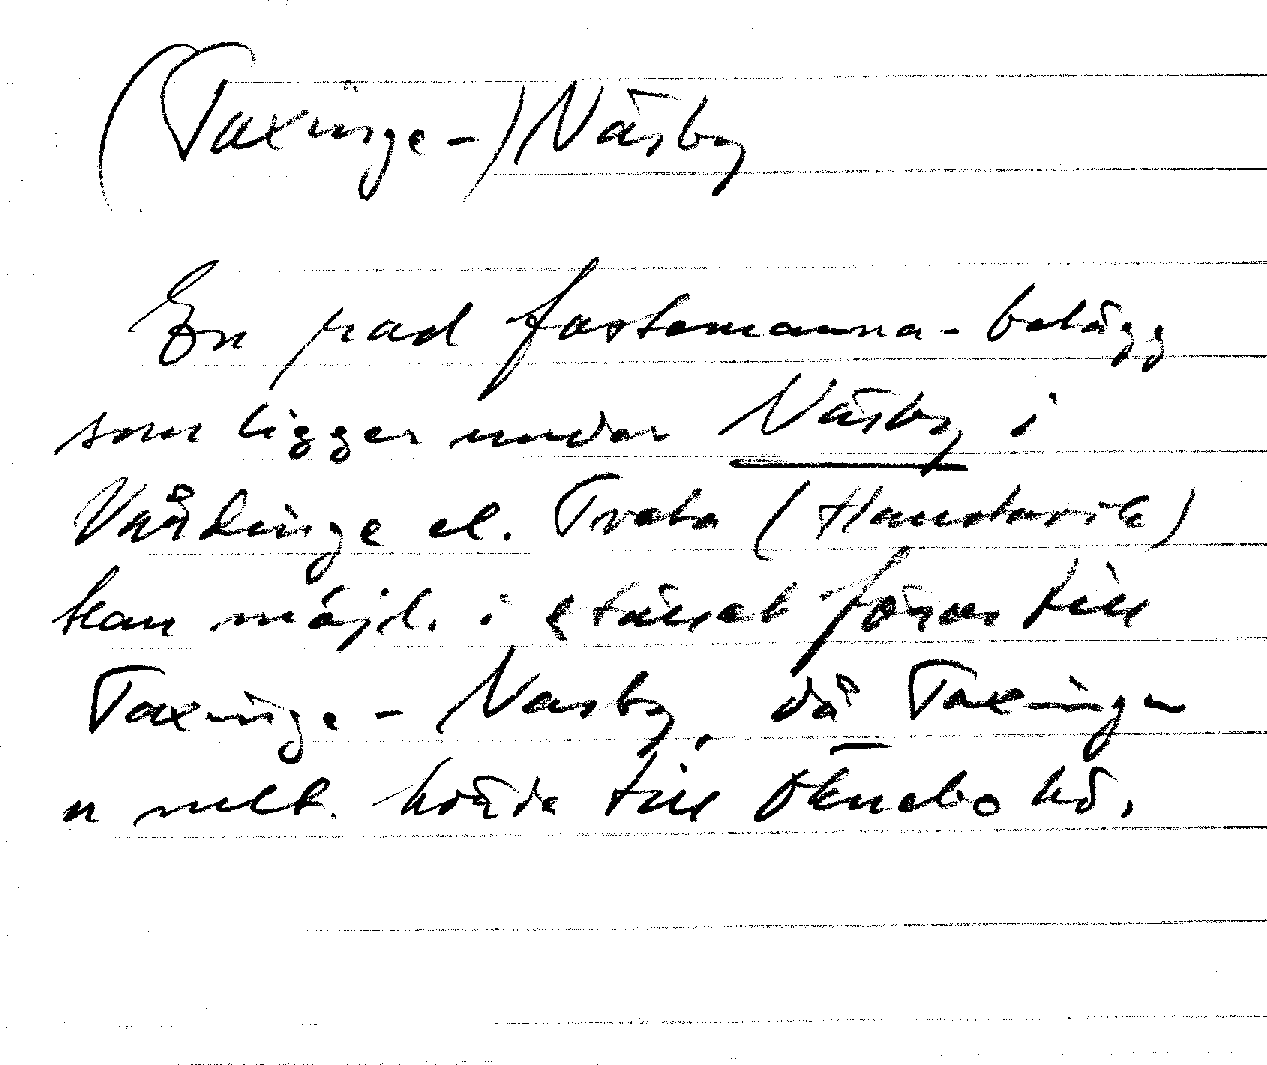 (Taxinge-) Näsby
En rad fastemanna-belägg
som ligger under Näsby i
Vårdinge el. Tveta (
kan möjl. i stället föras till
Taxinge-Näsby, då Taxinge
hörde till Öknebo hd.